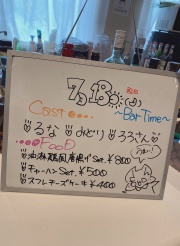 7/18 祝日
~Bar Time~
Cast
るな みどり ろろさん
Food
油淋鶏風唐揚げSet ¥900
チャーハンSet ¥500
スフレチーズケーキ ¥400